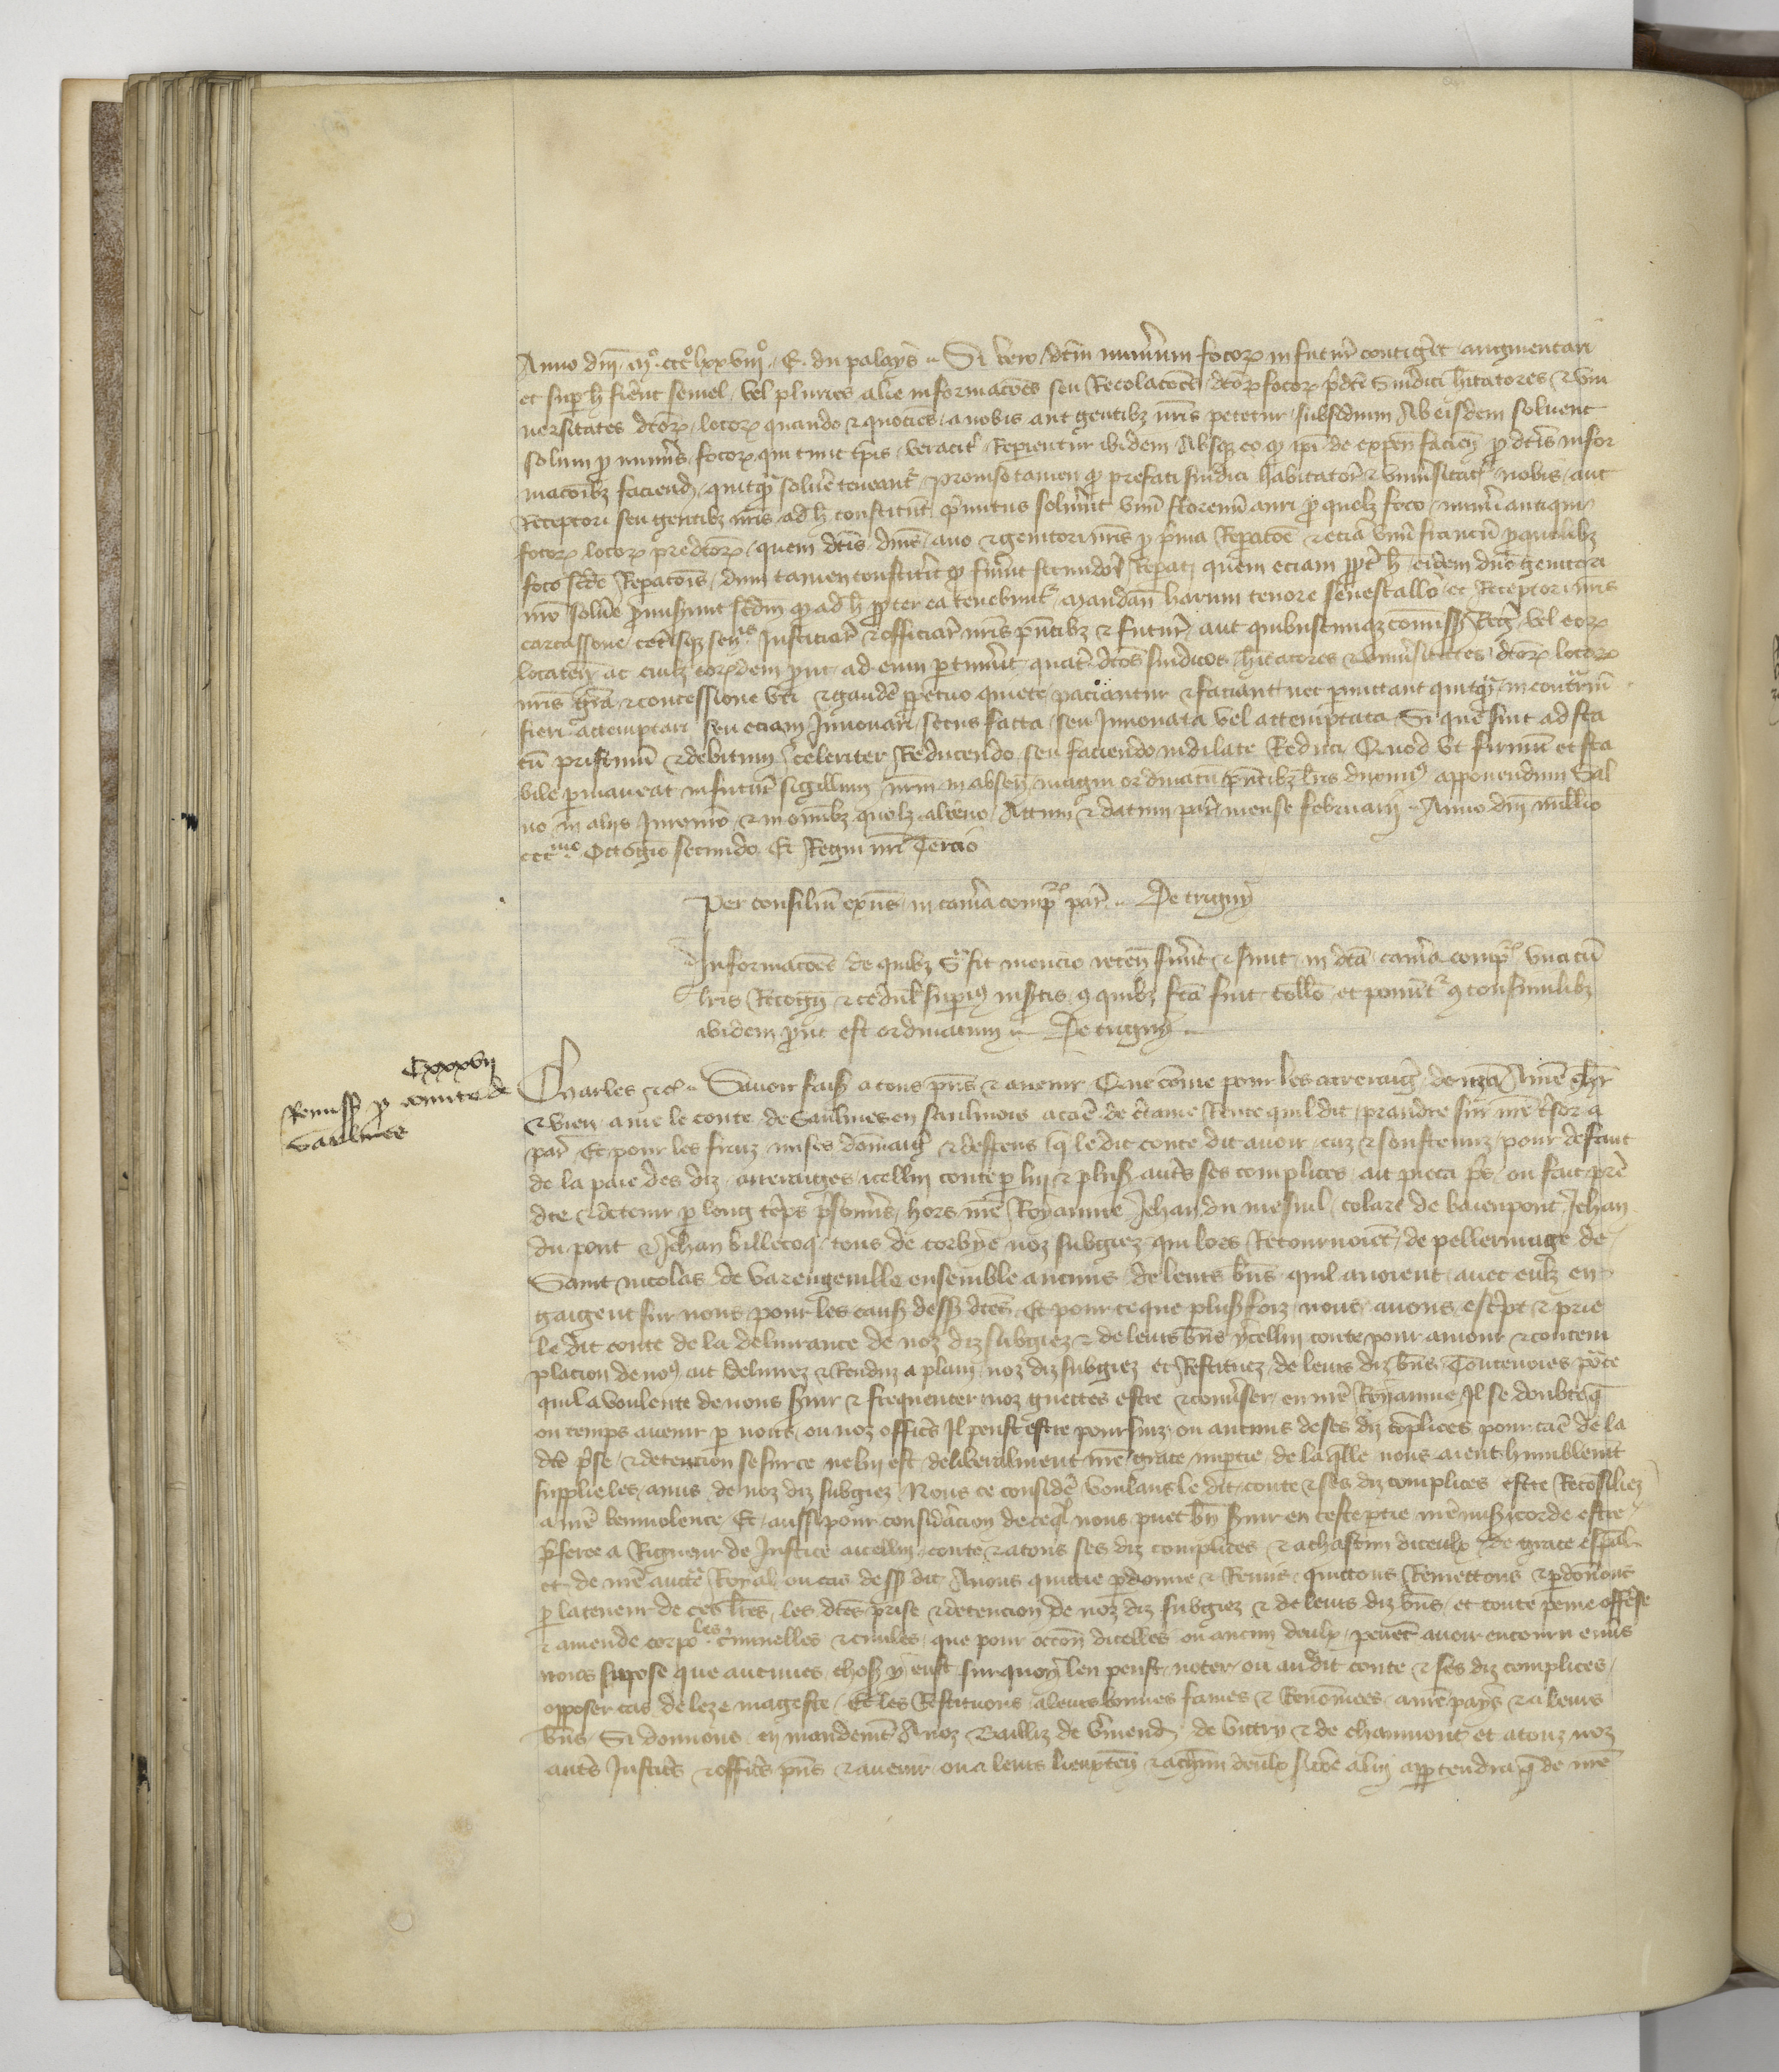 Anno dni m° ccc° lxxviii° . E. du palays .. Si vero dictum numerum focorum in futurum contigerit augmentari
et super hoc fierent semel vel pluries alie informaciones seu Recolaciones dictorum focorum predicti Sindici hitatores & vni
uersitates dictorum locorum quando & quociens a nobis aut gentibus nostris petetur subsidium Ab eisdem soluent
solum pro numero focorum qui tunc temporis veraciter Reperientur ibidem Absque eo quod ipsi de expensis faciendis pro dictis infor
macionibus faciend quitquam soluere teneantur . Promiso tamen quod prefati sindici habitatores & vniuersitates nobis aut
Receptori seu gentibus nostris ad hoc constitutis primitus soluerint vnum florenum auri pro quolibet foco numeri antiqui
focorum locorum predictorum quem dictis dominis auo & genitori nostris pro prima Reparacione & eciam vnum francum pro quolibet
foco secunde Reparacionis dum tamen constiterit quod fuerint secundo Reparati quem eciam propter hoc eidem domino genitori
nostro soluere promiserunt secundum quod ad hoc propter ea tenebuntur . Mandantes harum tenore senescallo et Receptori nostris
carcassone ceterisque senescallis Justiciariis & officiariis nostris presentibus & futuris aut quibuscunque commissariis Regiis vel eorum
locatenentibus ac cuilibet eorumdem prout ad eum pertinuerit quatinus dictos sindicos hitatores & vniuersitates dictorum locorum
nostris gracia & concessione vti & gaudere perpetuo quiete paciantur & faciant nec permittant quitquam in contrarium
fieri attemptari seu eciam Innouari secus facta seu Innouata vel attemptata Si que sint ad sta
tum pristinum & debitum celeriter Reducendo seu faciendo indilate Reduci Quod vt firmum et sta
bile permaneat in futurum sigillum nostrum in absencia magni ordinatum presentibus litteris duximus apponendum Sal
uo in aliis Jure nostro & in omnibus quolibet alieno Actum & datum parisius mense februarii .. Anno domini millesimo
ccc mo Octogesimo secundo Et Regni nostri Tercio
Per consilium existens in camera compotorum parisius .. De trigny
Informaciones de quibus supra fit mencio retente fuerunt & sunt in dicta camera compotorum vna cum
litteris Recognicionis & cedula superius insertis cum quibus facta fuit collacio et ponuntur cum consimilibus
ibidem prout est ordinatum .. De trigny ..
Cxxxvii
Remissio pro comite de
Saulmes
Charles &c .. Sauoir faisons a tous presens & auenir Que comme pour les arreraiges de nostre Ame chevalier
par Et pour les fraiz mises dommaiges & despens que le dit conte dit auoir euz & soustenuz pour defaut
de la paie des diz arreraiges icellui conte par lui & plusieurs autres ses complices ait pieca pris ou fait pren
dre & detenir par long temps prisonniers hors nostre Royaume Jehan du mesnil colart de baienpont Jehan
du pont & Jehan billecoq tous de corbye noz subgiez qui lors Retournoient de pellerinage de
Saint nicolas de varengeuille ensemble aucuns de leurs biens quil auoient auec eulx en
gaigent sur nous pour les causes dessus dictes Et pour ce que plusieurs foiz nous auons escript & prie
le dit conte de la deliurance de noz diz subgiez & de leurs biens ycellui conte pour amour & contem
placion de nous ait deliurez & Renduz a plain noz diz subgiez et Restituez de leurs diz biens Toutesuoies pour ce
quil a voulente de nous seruir & frequenter noz guerres estre & conuerser en nostre Royaume Il se doubte que
ou temps auenir par nous ou noz officiers Il peust estre poursuiz ou aucuns de ses diz complices pour cause de la
dicte prise & detencion se sur ce ne lui est deliberalment nostre grace impartie de laquelle nous aient humblement
supplie les amis de noz diz subgiez Nous ce considere voulans le dit conte & ses diz complices estre Reconsiliez
a nostre beniuolence Et aussi pour consideracion de ce quil nous puet bien seruir en ceste partie nostre misericorde estre
preferee a Rigueur de Justice a icellui conte & a tous ses diz complices & a chascun diceulx de grace especial
et de nostre auctorite Royal ou cas dessus dit Auons quictie pardonne & Remis quictons Remettons & pardonnons
par la teneur de ces lettres les dictes prise & detencion de noz diz subgiez & de leurs diz biens et toute peine offense
& amende corporelles criminelles & ciuiles que pour occasion dicelles ou aucun deulx peuent auoir encouru enuers
nous suppose que aucunes choses y eust surquoy len peust noter ou au dit conte & ses diz complices
opposer cas de leze mageste . Et les Restituons a leurs bonnes fames & Renommees a nostre pays & a leurs
biens Si donnons en mandement A noz Bailliz de vermendois de vitry & de chaumont et a touz noz
autres Justiciers & officiers presens & auenir ou a leurs lieuxtenans & a chascun deulx si comme a lui appartendra que de nostre